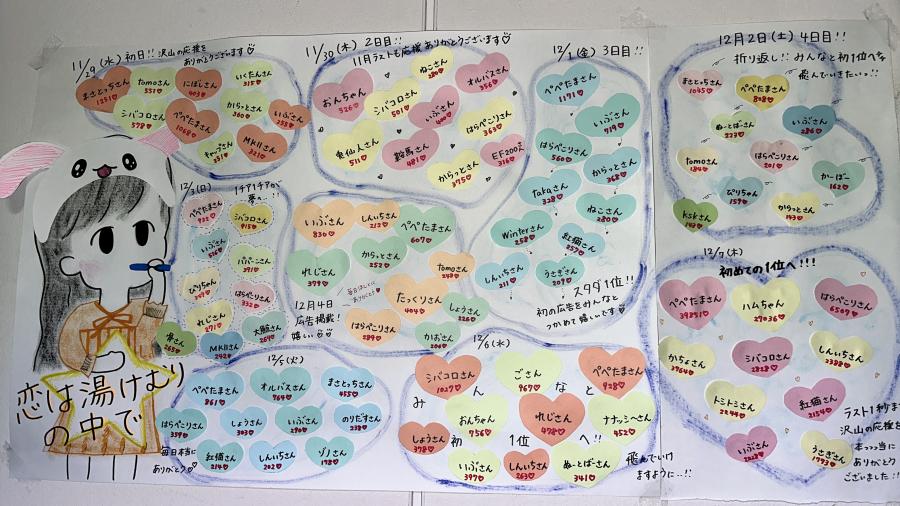 11/29(水) 初日!! 沢山の応援を
ありがとうございます
まさとっちさん
1251
tomoさん
551
にぼしさん
403
いくたんさん
315
シバコロさん
578
ぺぺたまさん
1068
からっとさん
360
いぶさん
255
キャップさん
251
MKIIさん
221
11/30(木) 2日目!!
11月ラストも応援ありがとうございます
おんちゃん
526
シバコロさん
501
ねこさん
オルバスさん
356
いぶさん
400
はらぺこりさん
363
黄仙人さん
511
鞍馬さん
481
からっとさん
375
EF200さん
316
12/1(金) 3日目!!
ぺぺたまさん
1171
いぶさん
919
はらぺこりさん
560
からっとさん
368
takaさん
328
ねこさん
280
Winterさん
258
紅猫さん
257
しんいちさん
211
うさぎさん
207
スタダ1位!!
初の広告をみんなと
つかめて嬉しいです
12月2日(土) 4日目!!
折り返し!! みんなと初1位へを
飛んでいきたいっ!!
まさとっちさん
1045
ぺぺたまさん
808
ぬーとばさん
223
いぶさん
286
tomoさん
184
はらぺこりさん
201
かーぼーさん
162
ぴりちゃん
159
からっとさん
143
kskさん
142
12/3(日)
1チア1チアが
ぺぺたまさん
932
シバコロさん
915
いぶさん
516
パパーンさん
391
ぴりちゃん
はらぺこりさん
332
れじさん
271
昴さん
265
MKIIさん
242
大福さん
いぶさん
830
しんいちさん
212
ぺぺたまさん
607
れじさん
379
からっとさん
252
tomoさん
243
たっくりさん
404
しょうさん
226
はらぺこりさん
289
かおるさん
204
毎日ほんとに
ありがとう
12月4日
広告掲載!
嬉しい
12/5(火)
ぺぺたまさん
861
オルバスさん
764
まさとっちさん
455
はらぺこりさん
359
しょうさん
303
いぶさん
290
のりだすさん
238
紅猫さん
214
しんいちさん
202
ゾノさん
198
毎日本当に
ありがとう
12/6(水)
みんなと
初1位へ!!
シバコロさん
1027
ごさん
967
ぺぺたまさん
928
おんちゃん
756
れじさん
478
ナナッシェさん
452
しょうさん
398
いぶさん
397
しんいちさん
263
ぬーとばーさん
341
飛んでいけ
ますように…!!
12/7(木)
初めての1位へ!!!
ぺぺたまさん
39851
ハムちゃん
29036
はらぺこりさん
6509
かちょさん
3964
シバコロさん
2828
しんいちさん
2388
トシトシさん
2244
紅猫さん
2154
いぶさん
2028
うさぎさん
1993
ラスト1秒ま
沢山の応援を
本っっっ当に
ありがとう
ございました!!
恋は湯けむり
の中で